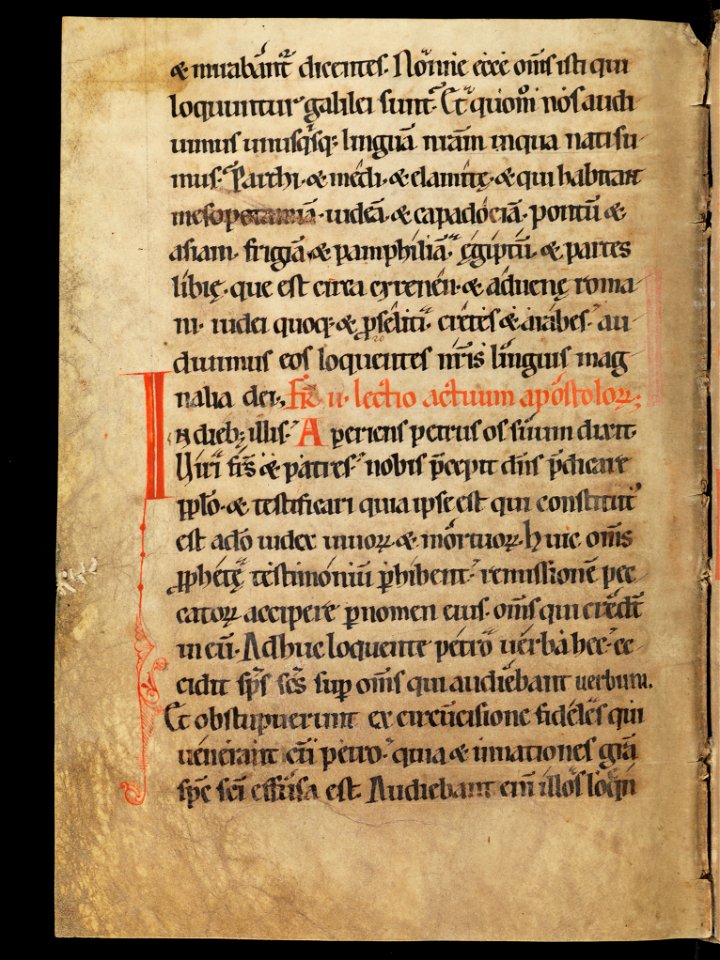 & mirabant᷑ dicentes. Nonne ecce om̄s isti qui
loquuntur galilei sunt. Et quom̄ nos audi
uimus unusq̇sq; linguā nr̄am inqua nati su
mus. Parthi. & medi. & elamitę. & qui habitant
mesopotamiā. iudeā. & capadociā. pontū &
asiam. frigiā. & pamphiliā. ęgiptū. & partes
libię. que est circa cyrenen. & aduenę roma
ni. iudei quoq; & p̄seliti. cretes & arabes. au
diuimus eos loquentes nr̄is linguis mag
nalia dei. Fr̄. ii. lectio actuum apostoloꝝ;
In dieb; illis. Aperiens petrus os suum dixit.
Uiri fr̄s & patres. nobis p̄cepit dn̄s p̄dicare
pp̄lo. & testificari quia ipse est qui constitut᷑
est ado iudex uiuoꝝ & mortuoꝝ. Huic om̄s
ꝓphetę testimoniū ꝑhibent. remissionē pec
catoꝝ accipere ꝑ nomen eius. om̄s qui credt̄
in eū. Adhuc loquente petro uerba hec. ce
cidit sp̄s sc̄s sup̄ om̄s qui audiebant uerbum.
Et obstupuerunt ex circūcisione fideles qui
uenerant cū petro. quia & innationes grā
sp̄c sc̄i effusa est. Audiebant enī illos loqn̄